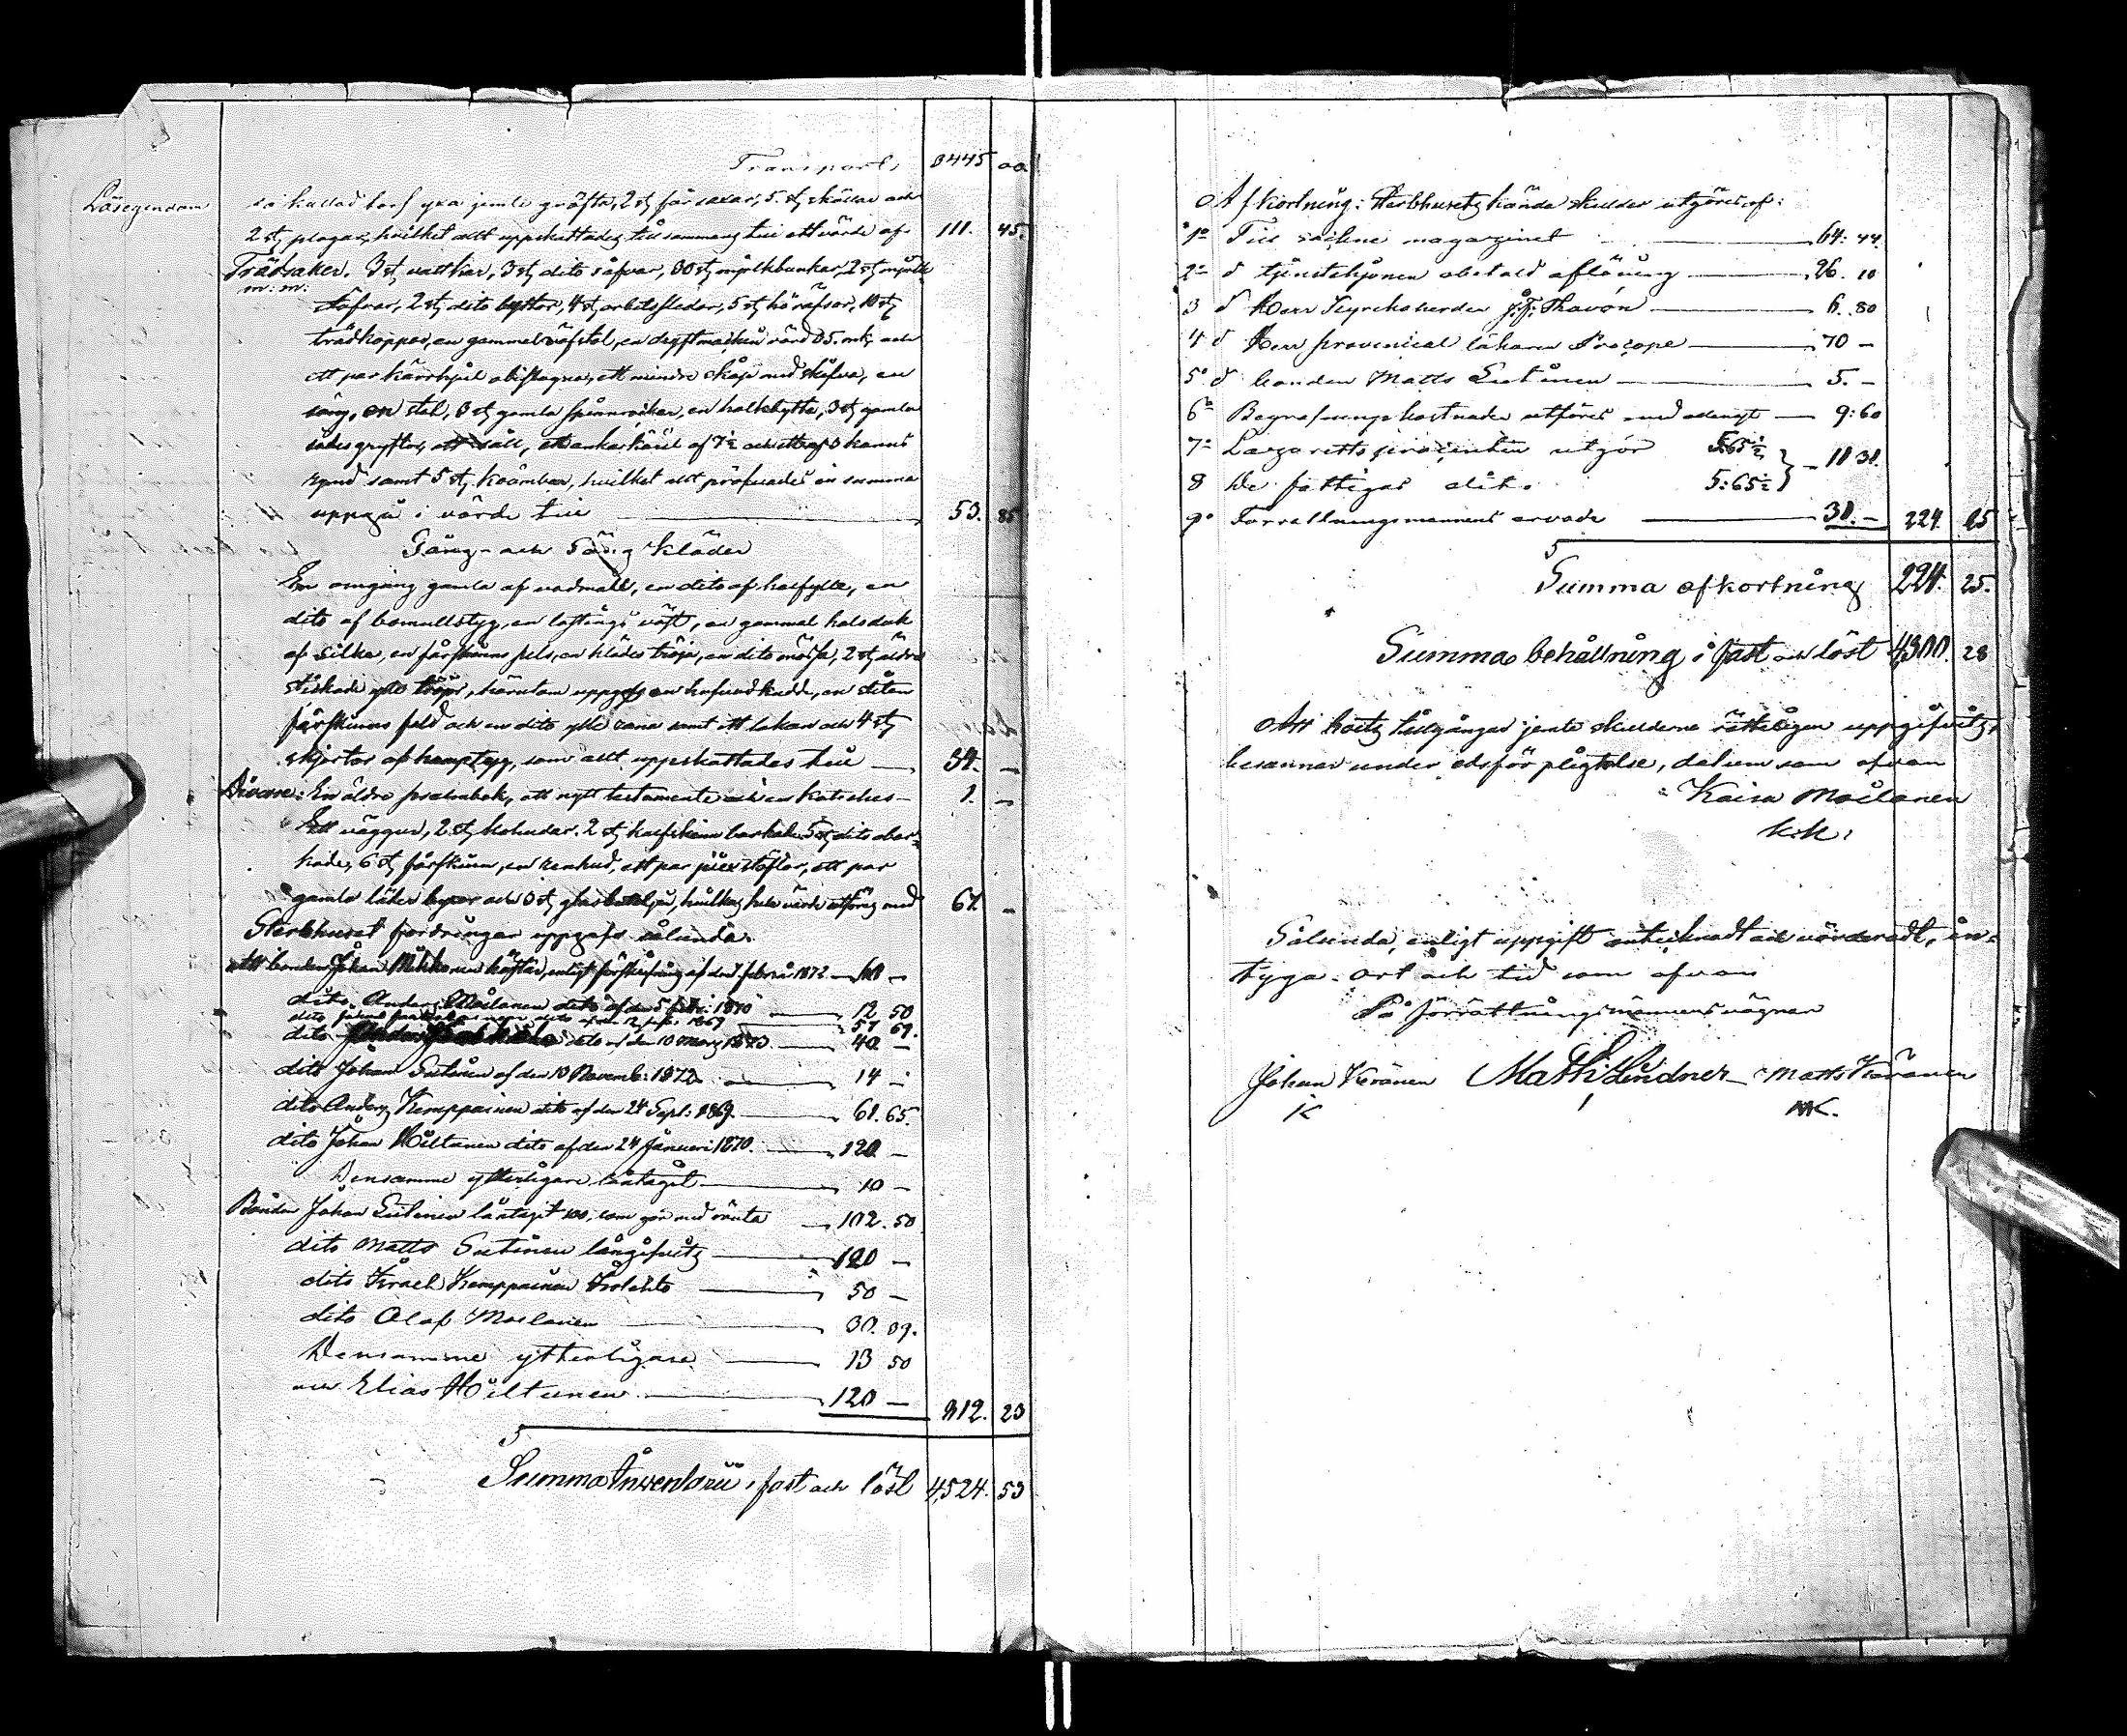 Transport, 3445 00
Lösegendom så kallad torf yxa jemte gräfta, 2 st får saxar, 5. st skällor och
2 st plogar, hvilket allt uppskattades tillsammans till ett värde af 111. 45.
Trädsaker. 3 st vattkar, 3 st dito såfvar, 30 st mjölkbunkar, 2 st mjölk
m: m:
såfvar, 2 st dito byttor, 4 st arbetsslädar, 5 st höräfsor, 10 st
trädkoppar, en gammal väfstol, en värd 35. mk, och
ett par kärrhjul obeslagna, ett mindre skåp med skifva, en
säng, en stol, 3 st gamla spinnrockar, en halkbytta, 3 st gamla
ett såll, ett ankarkäril af 7½ och ett af 3 kannors
rymd samt 5 st koämbar, hvilket allt pröfvades in summa
uppgå i värde till 53. 85
Gång- och Säng kläder
En omgång gamla af vadmall, en dito af halfylle, en
dito af bomullstyg, en lastings väst, en gammal halsduk
af silke, en fårskinns pels, en klädes tröja, en dito mössa, 2 st äldre
stickade ylle tröjor, härutom uppgafs en hufvudkudde, en sliten
fårskinns fäld och en dito ylle rana samt ett lakan och 4 st
skjortor af hamptyg, som allt uppskattades till 34. —
Diverse: En äldre psalmbok, ett nytt testamente och en Katekes 1. —
Ett väggur, 2 st kohudar. 2 st kalfskinn barkade 5 st dito obar-
kade, 6 st fårskinn, en renhud, ett par pjexstöflar, ett par
gamla läder byxor och 3 st glasbuteljer, hvilkas hela värde utföres med 67. —
Sterbhuset fordringar uppgafs sålunda.
utt bonden Johan enligt förskrifning af den 1 februari 1872 60 —
dito Anders Moilanen dito af den 5 febr: 1870 12 50
dito dito af den 12 1869 57 69.
dito dito af den 10 Mars 1873. 40 —
dito Johan Suutinen af den 10 Novemb: 1872 14 —
dito Anders Kemppainen dito af den 24 Sept: 1869 61. 65.
dito Johan Hiltunen dito af den 24 Januari 1870. 120 —
Densamme ytterligare låntagit 10 —
Bonden Johan Suutinen låntagit 100, som gör med ränta 102. 50
dito Matts Suutinen långifvits 120 —
dito Israel Kemppainen 50 —
dito Olof Moilanen 30. 39.
Densamme ytterligare 13 50
och Elias Hiltunen 120 — 812. 23
Summa Inventarii i fast och löst 4,524. 53
Afkortning: Sterbhusets kända skulder utgöres af:
1o Till sockne magazinet 64: 44.
2o d tjenstehjonen obetald aflöning 26. 10
3 d Herr Kyrkoherden J. F. Thavón 6. 80
4 d Herr provincial läkaren Procopé 70 —
5o d bonden Matts Suutinen 5. —
6o Begrafnings kostnader utföres med 9: 60
7o Lazaretts procenten utgör 5:65½
8 De fattigas dito 5:65½ } 11 31.
9o Förrättningsmannens arvode 31. — 224. 25
Summa afkortning 224. 25.
Summa behållning i fast och löst 4,300. 28
Att boets tillgångar jemte skulderne rätteligen uppgifvits,
besannar under edsförpligtelse, datum som ofvan
Kaisa Moilanen
k.k:
Sålunda, enligt uppgift antecknadt och värderadt, in-
tyga. ort och tid som ofvan
På förrättningsmännens vägnar
Johan Keränen Matts Lindner Matts Keränen
K MK.